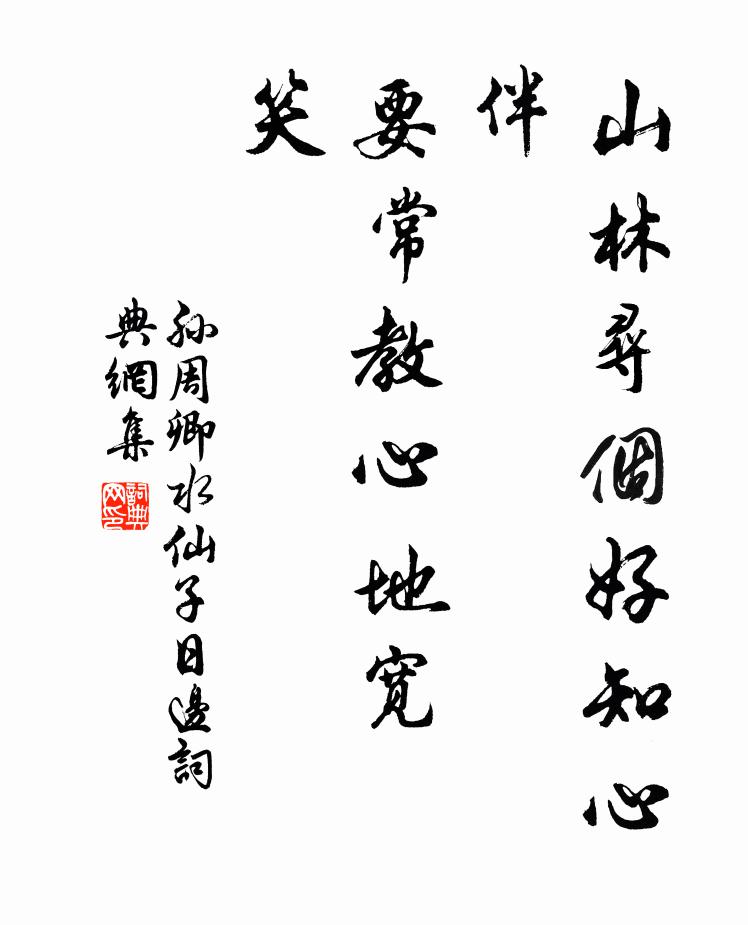 山林尋個好知心
伴
要常教心地寬
笑
孫周卿水仙子日邊詞
典網集
詞典
网印